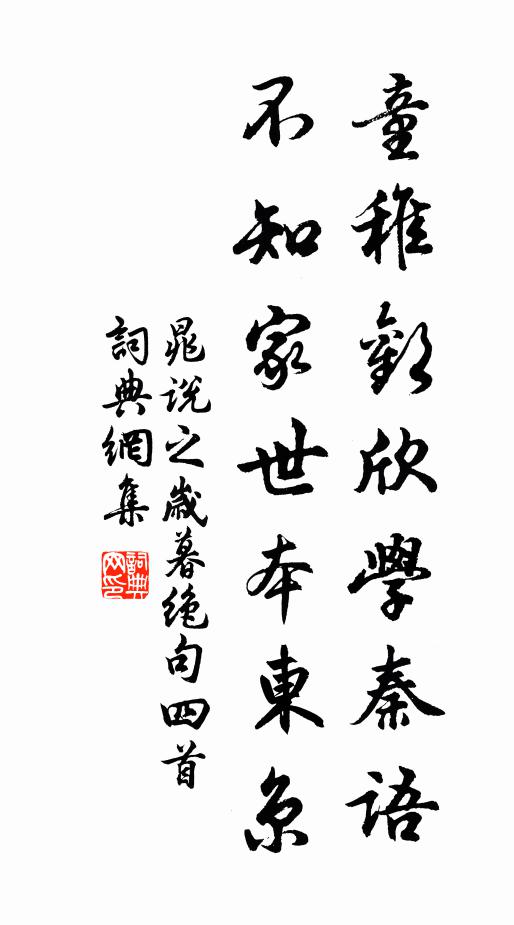 童稚歡欣學秦語
不知家世本東京
晁說之歲暮絶句四首
詞典網集
詞典網印